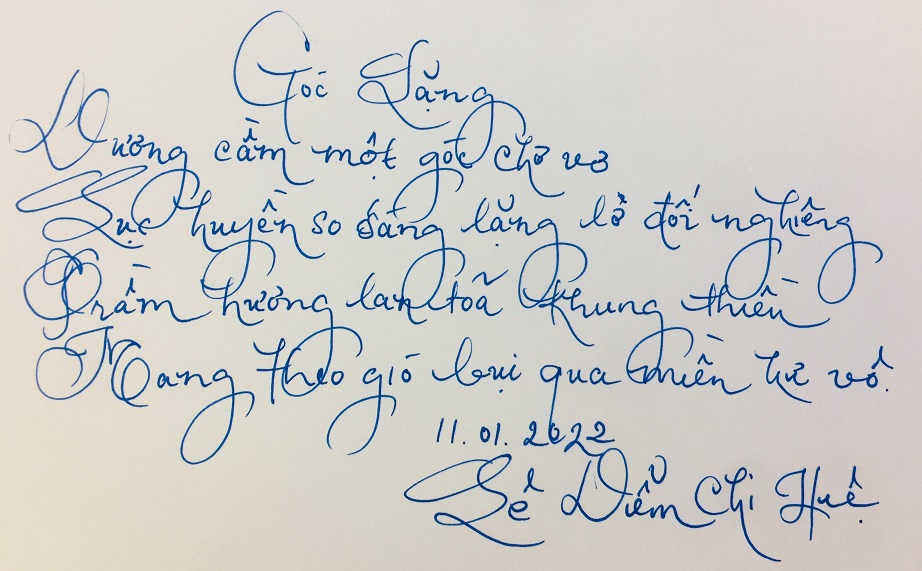 Góc Lặng
Dương cầm một góc chơ vơ
Lục huyền so dáng lặng lờ đối nghiêng
Trầm hương lan toã khung thiền
Mang theo gió bụi qua miền hư vô.
11.01.2022
Lê Diễm Chi Huệ